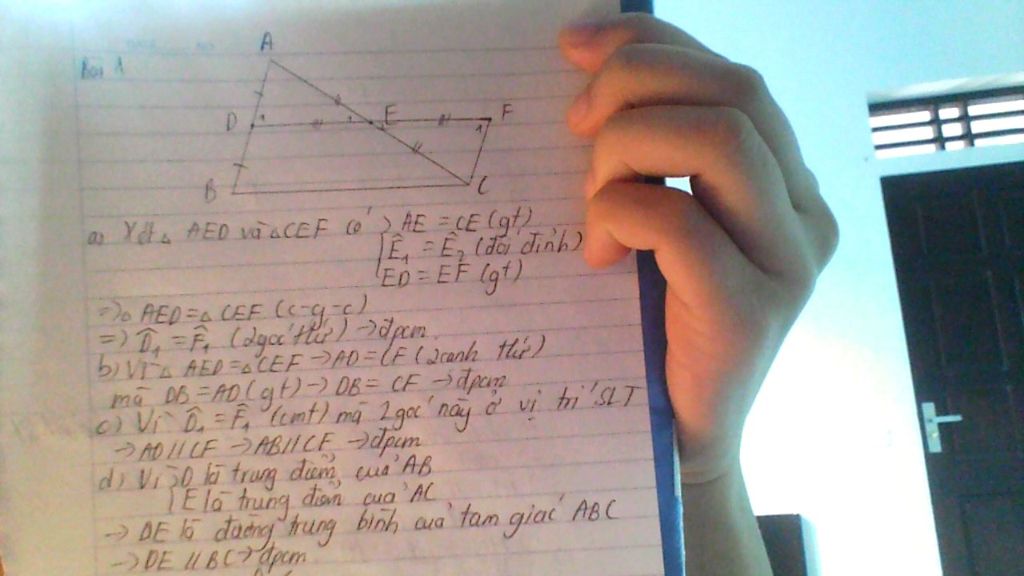 Bài 1
A
D 1 1 E F
2 1
B C
a) Xét △ AED và △CEF có { AE = CE (gt)
Ê₁ = Ê₂ (đối đỉnh)
ED = EF (gt)
=> △ AED = △ CEF (c-g-c)
=) D̂₁ = F̂₁ (2 góc t/ứ) → đpcm
b) Vì △ AED = △ CEF → AD = CF (2 cạnh t/ứ)
mà DB = AD (gt) → DB = CF → đpcm
c) Vì D̂₁ = F̂₁ (cmt) mà 2 góc này ở vị trí SLT
→ AD // CF → AB // CF → đpcm
d) Vì { D là trung điểm của AB
E là trung điểm của AC
→ DE là đường trung bình của tam giác ABC
→ DE // BC → đpcm